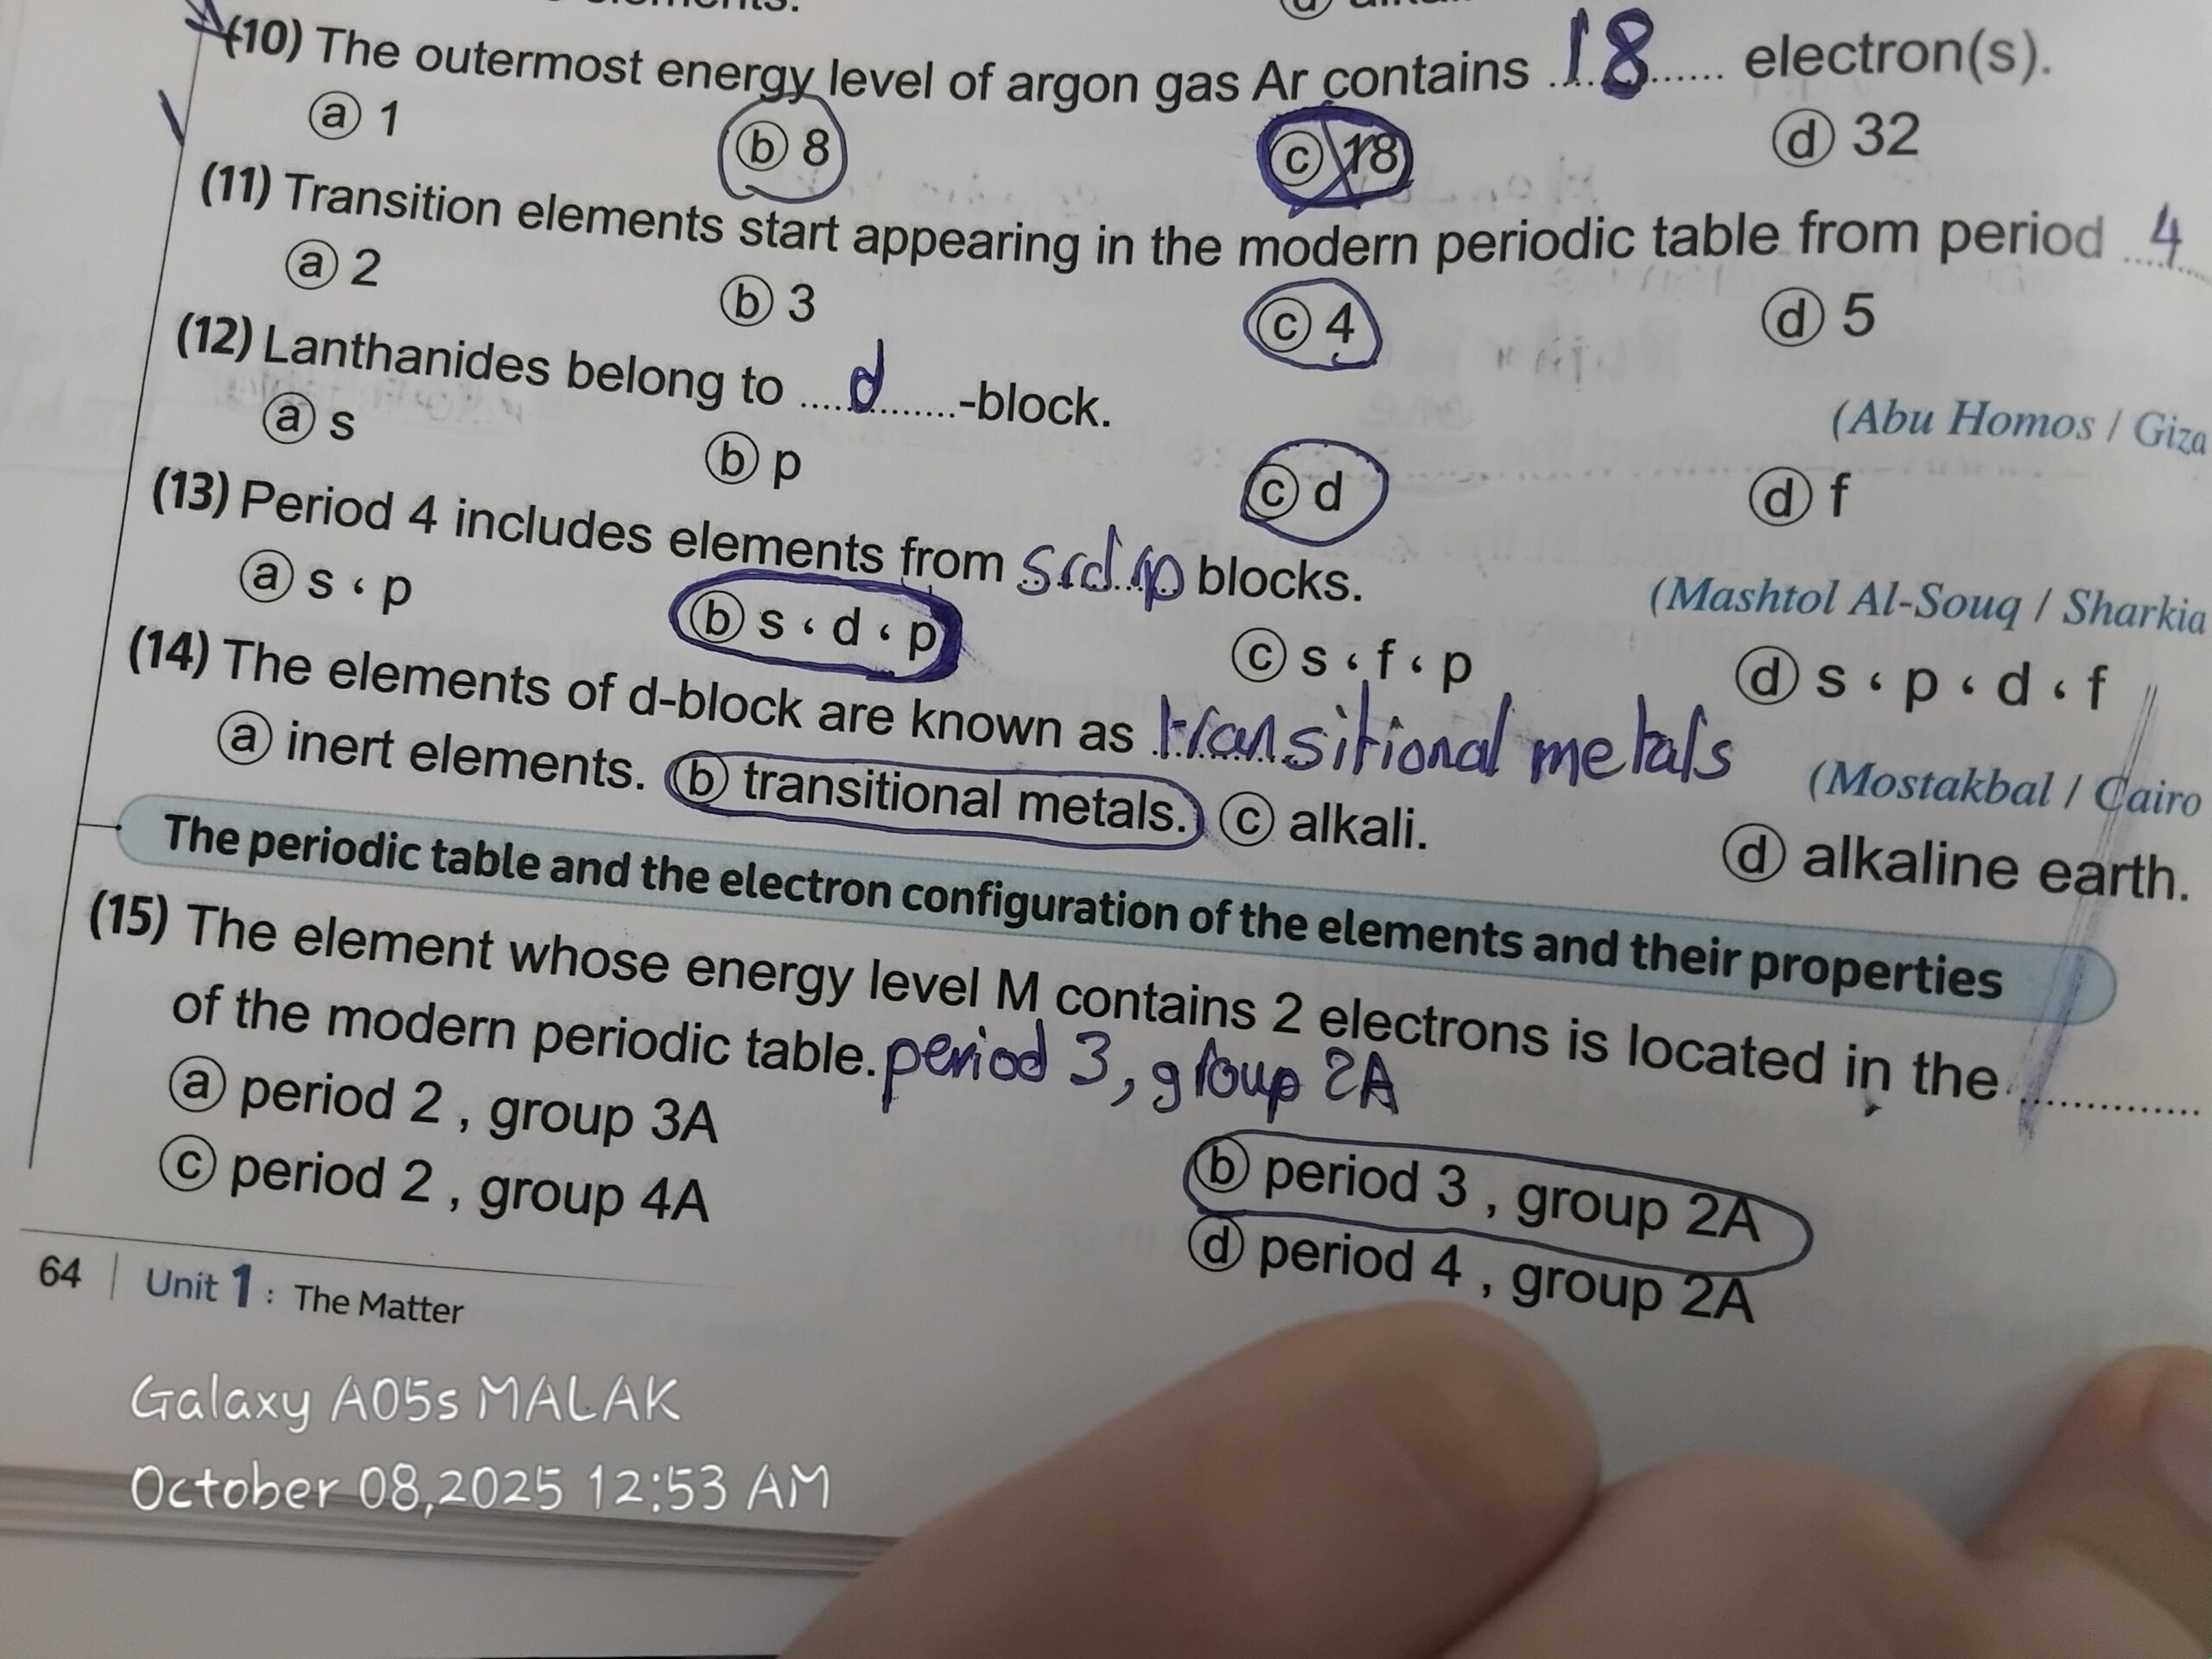 (10) The outermost energy level of argon gas Ar contains ...18... electron(s).
ⓐ 1 ⓑ 8 ⓒ 18 ⓓ 32
(11) Transition elements start appearing in the modern periodic table from period 4
ⓐ 2 ⓑ 3 ⓒ 4 ⓓ 5
(12) Lanthanides belong to ...d...-block.
(Abu Homos / Giza
ⓐ s ⓑ p ⓒ d ⓓ f
(13) Period 4 includes elements from s،d،p blocks.
(Mashtol Al-Souq / Sharkia
ⓐ s ، p ⓑ s ، d ، p ⓒ s ، f ، p ⓓ s ، p ، d ، f
(14) The elements of d-block are known as transitional metals
(Mostakbal / Cairo
ⓐ inert elements. ⓑ transitional metals. ⓒ alkali. ⓓ alkaline earth.
The periodic table and the electron configuration of the elements and their properties
(15) The element whose energy level M contains 2 electrons is located in the ............
of the modern periodic table. period 3, group 2A
ⓐ period 2 , group 3A ⓑ period 3 , group 2A
ⓒ period 2 , group 4A ⓓ period 4 , group 2A
64 | Unit 1 : The Matter
Galaxy A05s MALAK
October 08,2025 12:53 AM